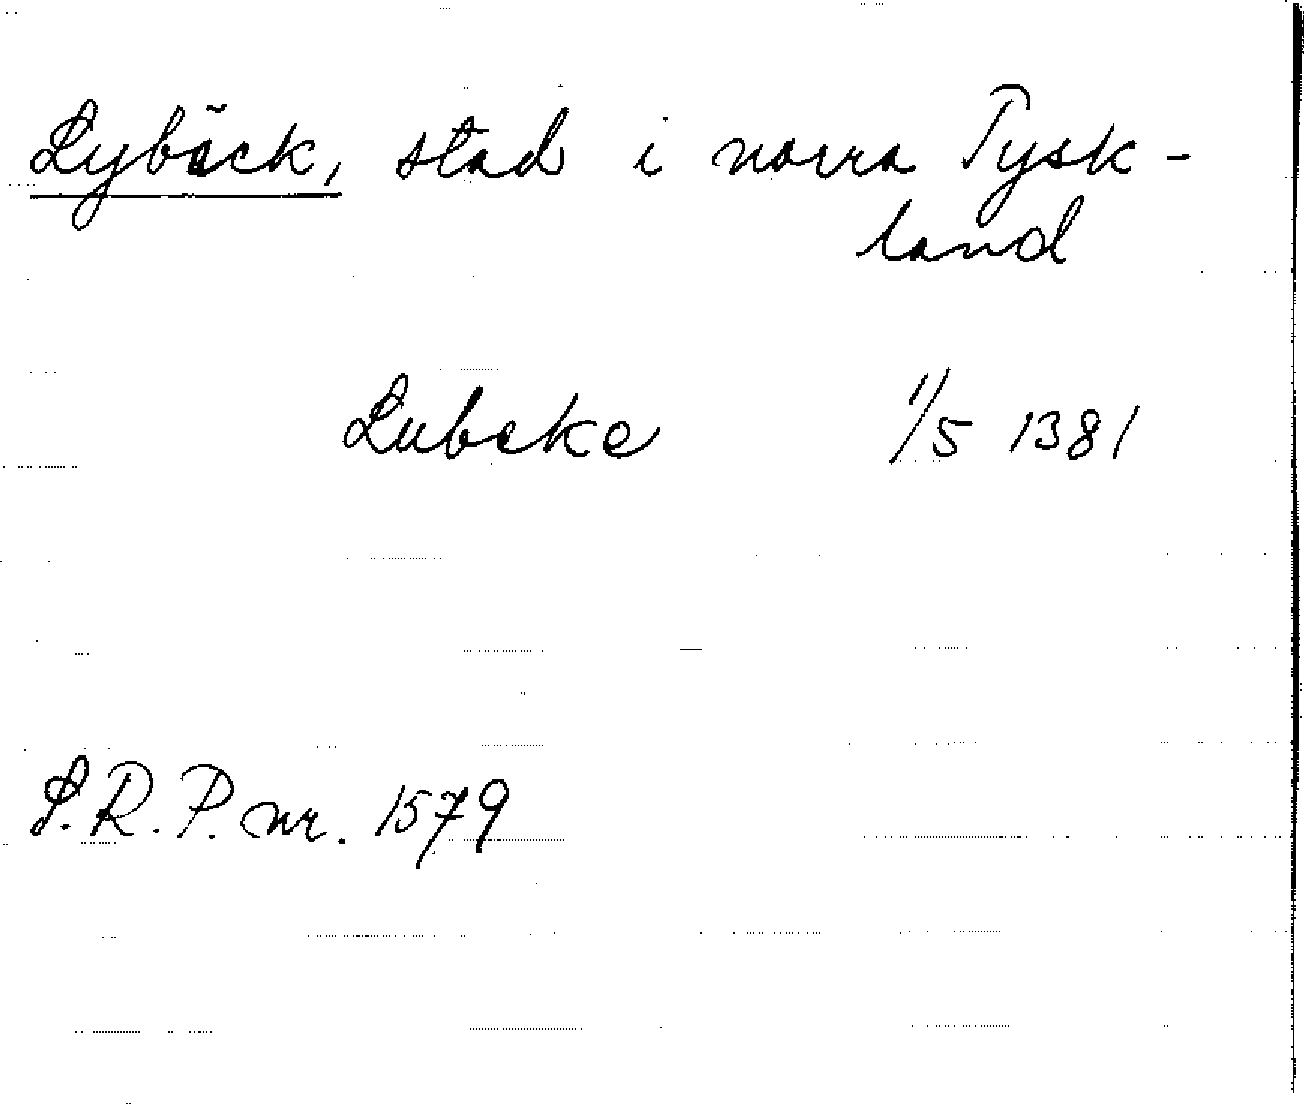 Lybäck, stad i norra Tysk-
land
Lubeke 1/5 1381
S.R.P. nr. 1579